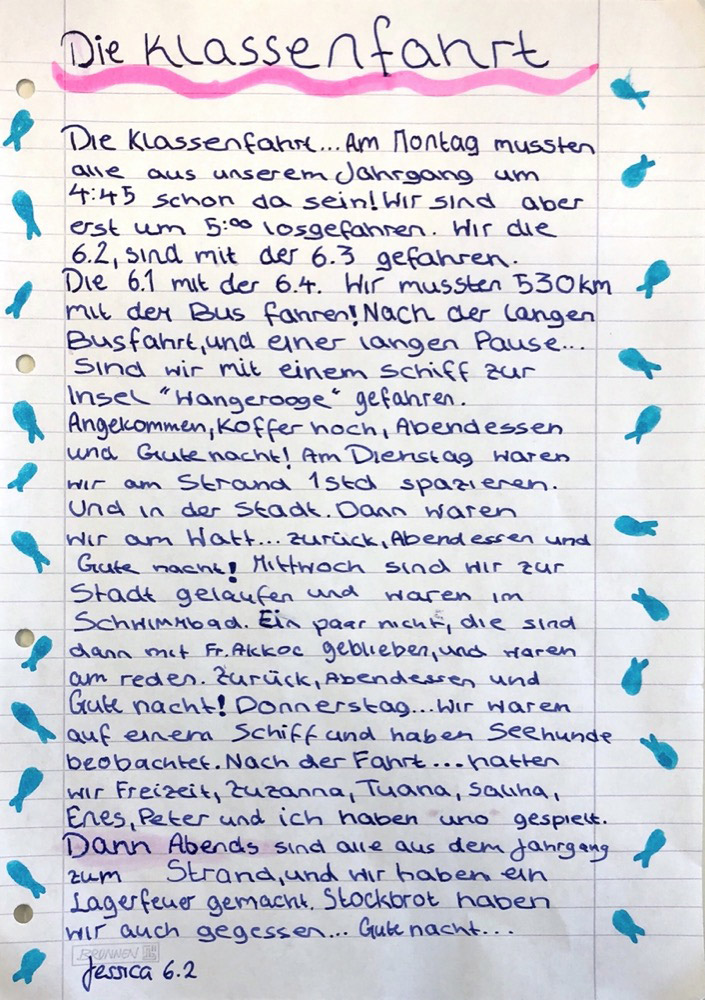 Die Klassenfahrt
Die Klassenfahrt... Am Montag mussten
alle aus unserem Jahrgang um
4:45 schon da sein! Wir sind aber
erst um 5:00 losgefahren. Wir die
6.2, sind mit der 6.3 gefahren.
Die 6.1 mit der 6.4. Wir mussten 530km
mit dem Bus fahren! Nach der langen
Busfahrt, und einer langen Pause...
Sind wir mit einem Schiff zur
Insel "Wangerooge" gefahren.
Angekommen, Koffer hoch, Abendessen
und Gute nacht! Am Dienstag waren
wir am Strand 1std spazieren.
Und in der Stadt. Dann waren
wir am Watt... zurück, Abendessen und
Gute nacht! Mittwoch sind wir zur
Stadt gelaufen und waren im
Schwimmbad. Ein paar nicht, die sind
dann mit Fr. Akkoc geblieben, und waren
am reden. Zurück, Abendessen und
Gute nacht! Donnerstag... Wir waren
auf einem Schiff und haben Seehunde
beobachtet. Nach der Fahrt... hatten
wir Freizeit, Zuzanna, Tuana, Saliha,
Enes, Peter und ich haben uno gespielt.
Dann Abends sind alle aus dem Jahrgang
zum Strand, und wir haben ein
Lagerfeuer gemacht. Stockbrot haben
wir auch gegessen... Gute nacht...
BRUNNEN
Jessica 6.2